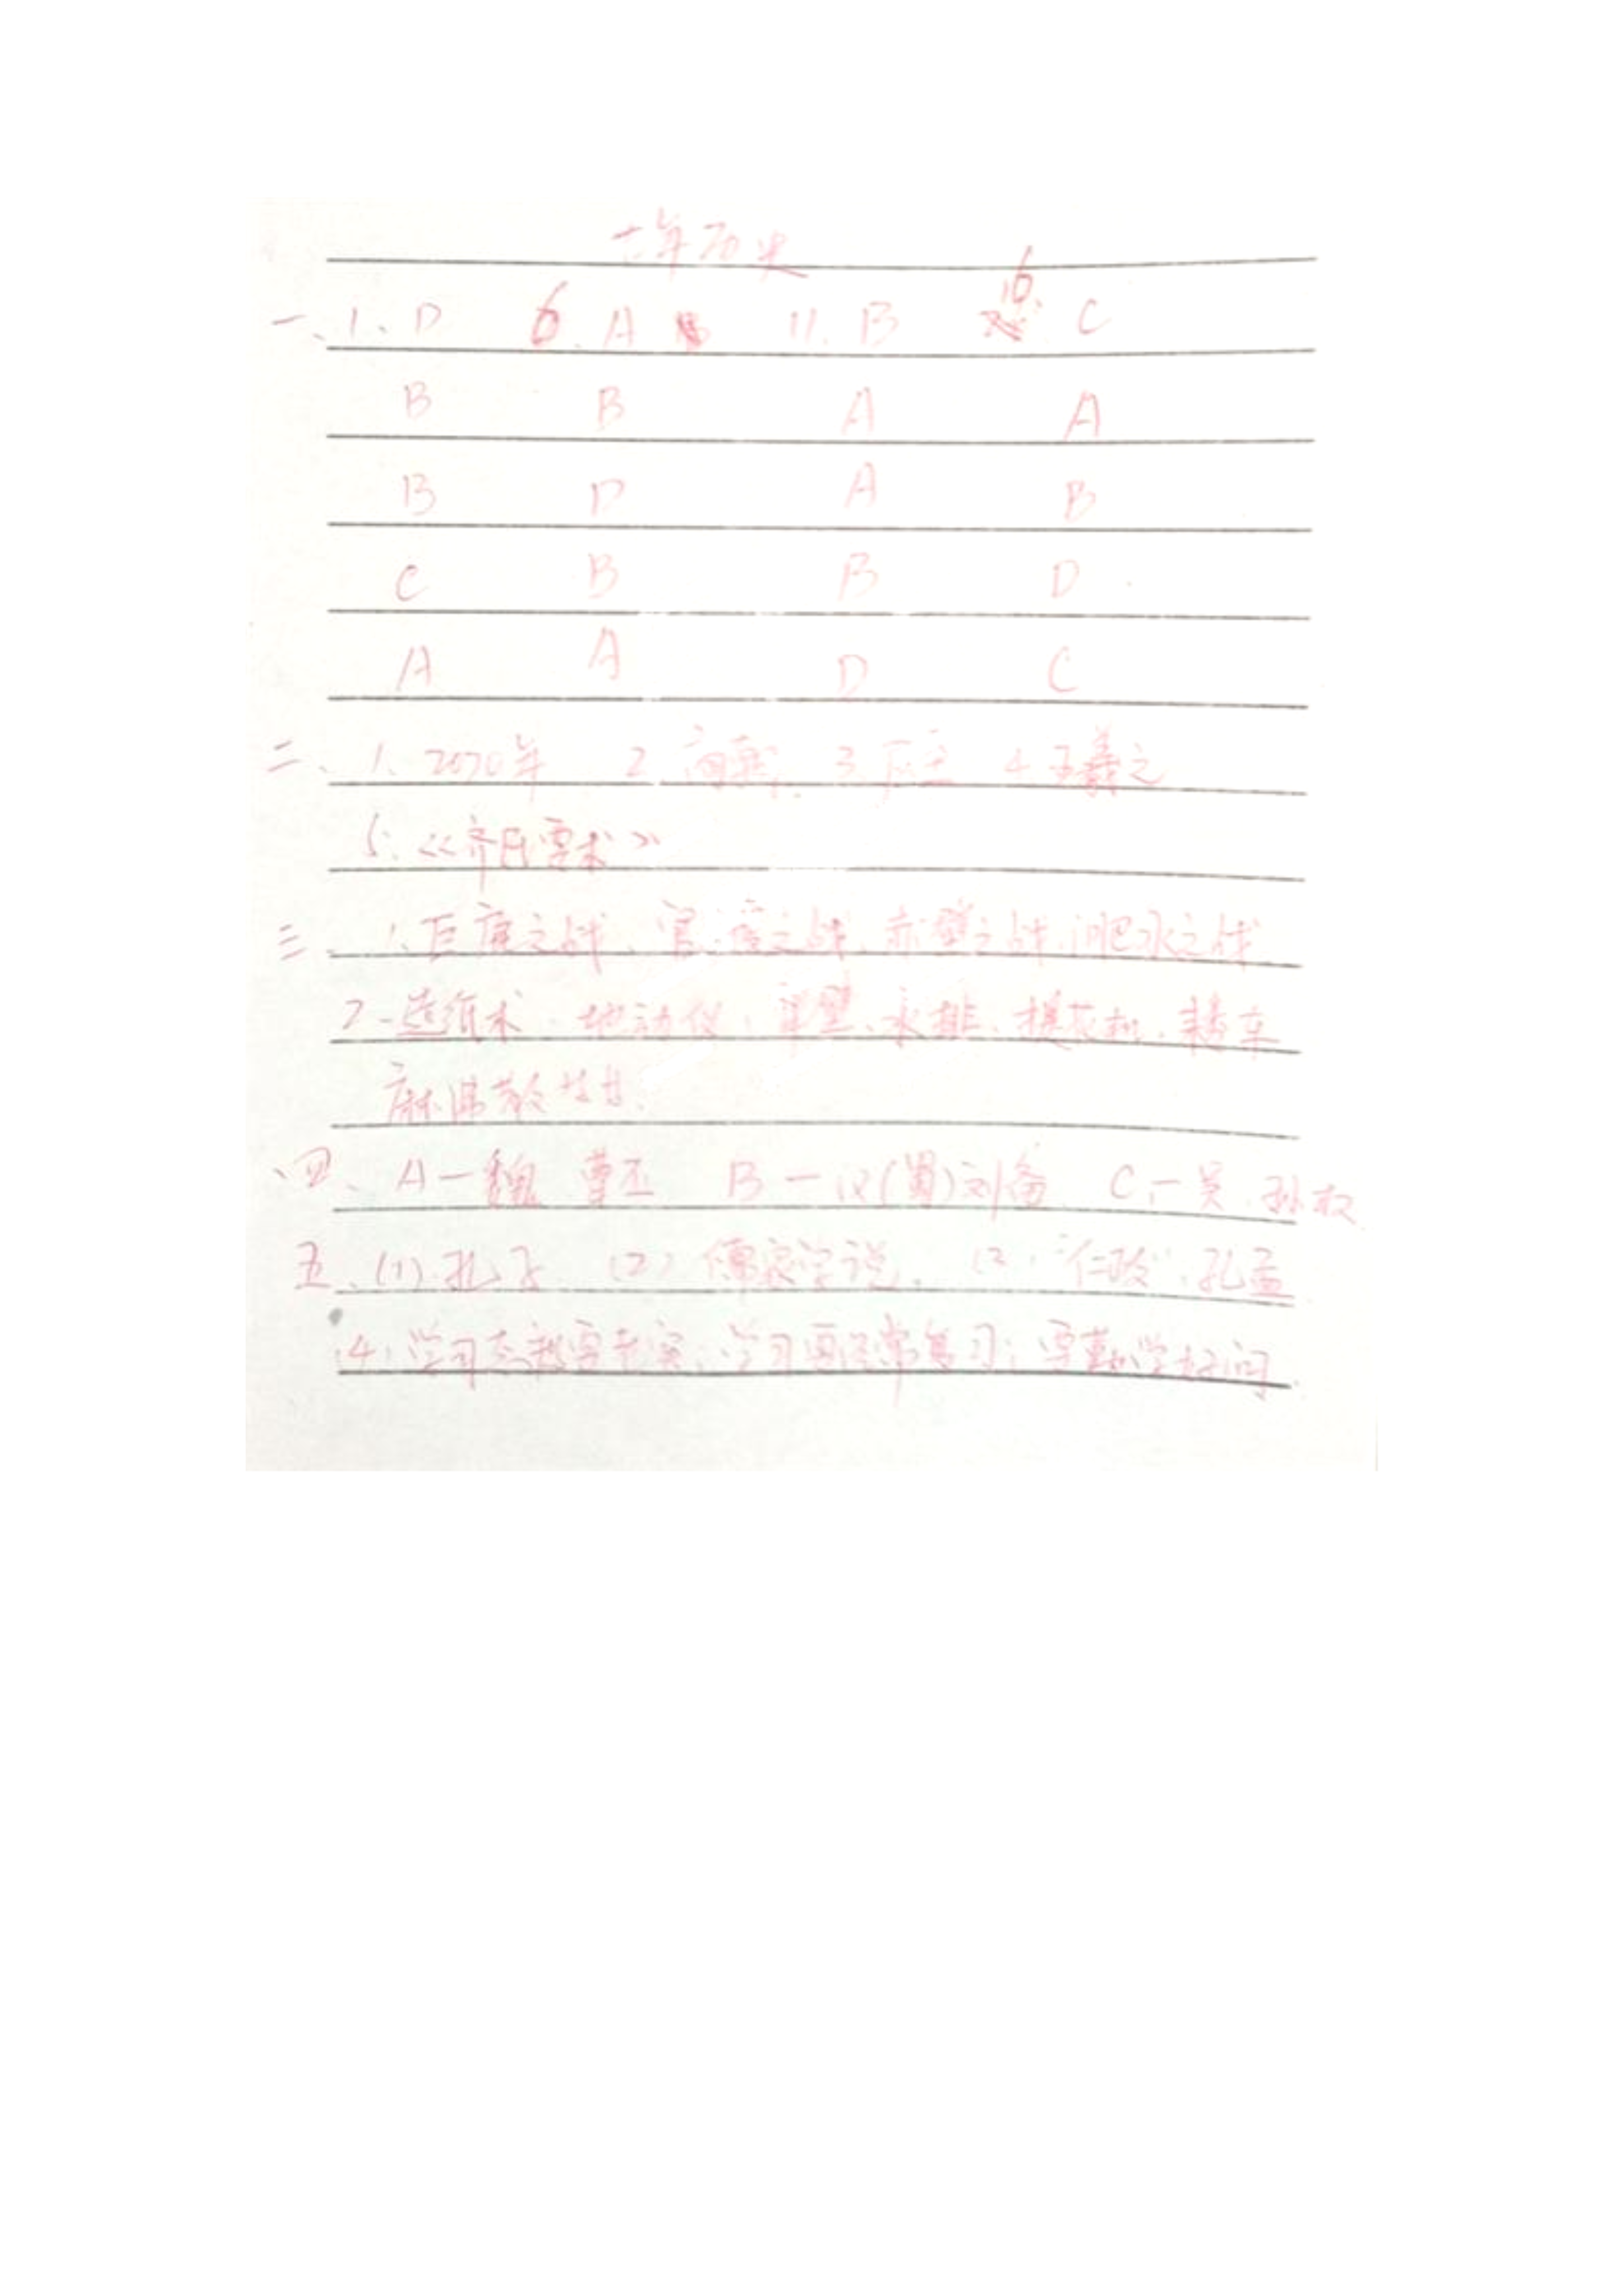 七年历史
一、1、D 6.A 11.B 16.C
B B A A
B D A B
C B B D
A A D C
二、1、2070年 2 商鞅 3. 4 王羲之
5.《齐民要术》
三、1、巨鹿之战、官渡之战、赤壁之战、淝水之战
2-造纸术、地动仪、、水排、提花机、耧车
麻沸散
四、A—魏 曹丕 B—汉(蜀)刘备 C—吴.孙权
五、(1).孔子 (2) 儒家学说. (3."仁政".孔孟
(4.学习态度要老实;学习要经常复习;要勤学好问